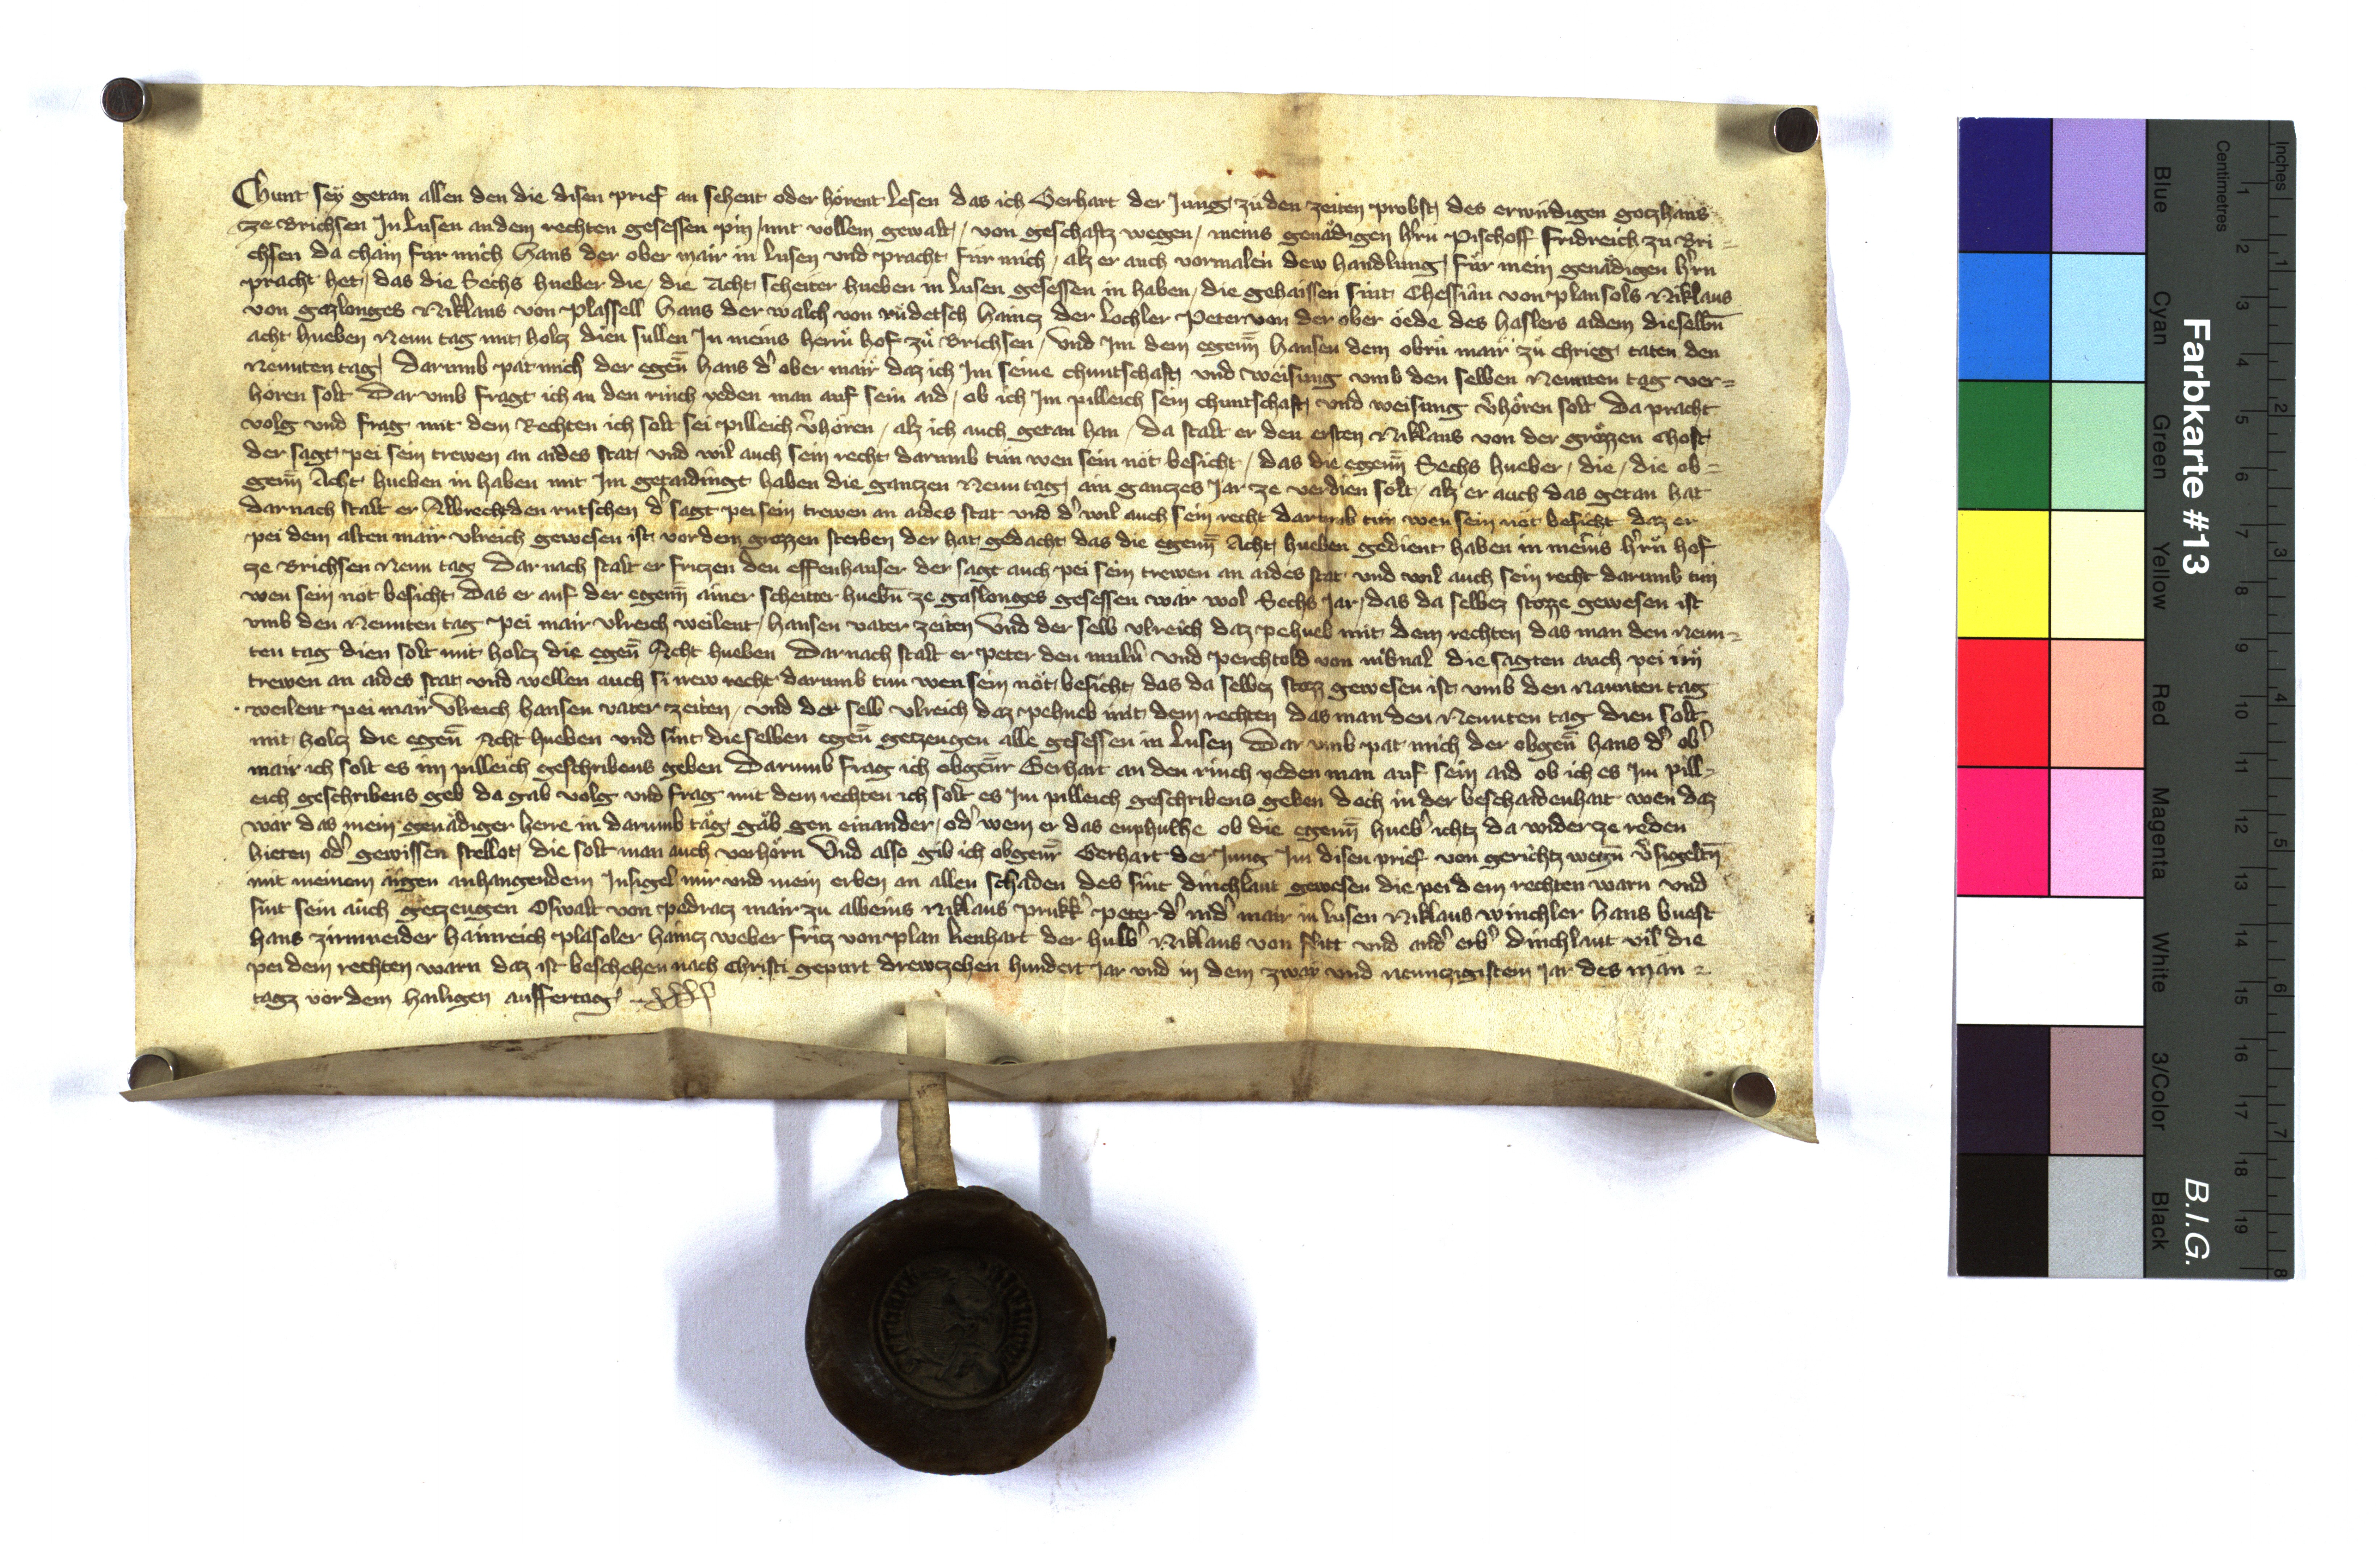 Chunt sey getan allen den die disen prief an sehent oder hörent lesen das ich Gerhart der Jung zu den zeiten probst des erwirdigen gotzhaus
ze Brichsen In Lusen an dem rechten gesessen pin mit vollem gewalt / von geschaftz wegen / meins genädigen h'rn Pischoff Fridreich zu Bri=
chsen da cham für mich Hans der ober mair in Lusen vnd pracht für mich / alz er auch vormalen dew handlung für mein genädigen h'rn
pracht het / das die Sechs hueber die / die Acht scheiter hueben in Lusen gesessen in haben / die gehaissen sint Chessian von plansols Niklaus
von gozlonges Niklaus von Plassell Hans der walch von rudetsch Haincz der Lochler Peter von der ober öede des haslers aidem dieselbn̄
acht hueben Neun tag mit holcz dien sullen In meins herrn hof zu Brichsen / Vnd Im dem egenn̄ Hansen dem obrn mair zu chrieg taten den
Neunten tag Darumb pat mich der egen̄ hans d' ober mair daz ich Im seine chuntschaft vnd weisung vmb den selben Neunten tag ver=
hören solt Dar vmb fragt ich an den rinch yeden man auf sein aid / ob ich Im pilleich sein chuntschaft vnd weisung v'hören solt Da pracht
volg vnd frag mit dem Rechten ich solt sei pilleich v'hören / alz ich auch getan han / Da stalt er den ersten Niklaus von der grözzen chost
der sagt pei sein trewen an aides stat vnd wil auch sein recht darumb tun wen sein nöt besicht / das die egenn̄ Sechs hueber / die / die ob=
genn̄ Acht hueben in haben mit Im getaidingt haben die ganczen Neun tag ain ganczes Jar ze verdien solt / alz er auch das getan hat
darnach stalt er Albrecht den rutschen d' sagt pei sein trewen an aides stat vnd d' wil auch sein recht darumb tun wen sein nöt besicht daz er
pei dem alten mair vlreich gewesen ist vor dem grozzen sterben der hat gedacht das die egenn̄ Acht hueben gedient haben in meins h'rn hof
ze Brichsen Neun tag Dar nach stalt er friczen den effenhauser der sagt auch pei sein trewen an aides stat vnd wil auch sein recht darumb tun
wen sein nöt besicht das er auf der egenn̄ ainer scheitter huebn̄ ze gaslonges gesessen wär wol Sechs Jar / das da selbez stozze gewesen ist
vmb den Neunten tag pei mair vlreich weilent / hansen vater zeiten Vnd der selb vlreich daz pehueb mit dem rechten das man den Neun=
ten tag dien solt mit holcz die egen̄ Acht hueben Darnach stalt er peter den muln̄ vnd perchtold von die sagten auch pei irn
trewen an aides stat vnd wellen auch si irew recht darumb tun wen sein nöt besicht das da selbez stozz gewesen ist vmb den Naunten tag
weilent pei mair Vlreich hansen vater zeiten / vnd der selb vlreich daz pehueb mit dem rechten das man den Neunten tag dien solt
mit holcz die egen̄ Acht hueben vnd sint die selben egen̄ geczeugen alle gesessen in Lusen Dar vmb pat mich der obgen̄ hans d' ob'
mair ich solt es im pilleich geschribens geben Darumb frag ich obgenr̄ Gerhart an den rinch yeden man auf sein aid ob ich es Im pill=
eich geschribens geb da gab volg vnd frag mit dem rechten ich solt es Im pilleich geschribens geben doch in der beschaidenhait wen daz
wär das mein genädiger herre in darumb täg gäb gen einander / od' wem er das enphulhe ob die egenn̄ hueb' ichtz da wider ze reden
hieten od' gewissen stellot die solt man auch verhörn Vnd also gib ich obgenr̄ Gerhart der Jung Im disen prief von gerichtz wegn̄ v'sigeltn̄
mit meinem aigen anhangendem Insigel mir vnd mein erben an allen schaden des sint dinchlaut gewesen die pei dem rechten warn vnd
sint sein auch geczeugen Oswalt von pedracz mair zu albeins Niklaus prukk' peter d' nid' mair in Lusen Niklaus winchler hans buest
hans zirmneider hainreich plasoler haincz weber fricz von plan lienhart der hulb' Niklaus von flitt vnd and' erb' dinchlaut vil die
pei dem rechten warn daz ist beschehen nach Christi gepurt drewczehen hundert Jar vnd in dem zway vnd neunczigistem Jar des män=
tagz vor dem hailigen auffertag
Farbkarte #13
B.I.G.
Blue Cyan Green Yellow Red Magenta White 3/Color Black
Centimetres 1 2 3 4 5 6 7 8 9 10 11 12 13 14 15 16 17 18 19
Inches 1 2 3 4 5 6 7 8